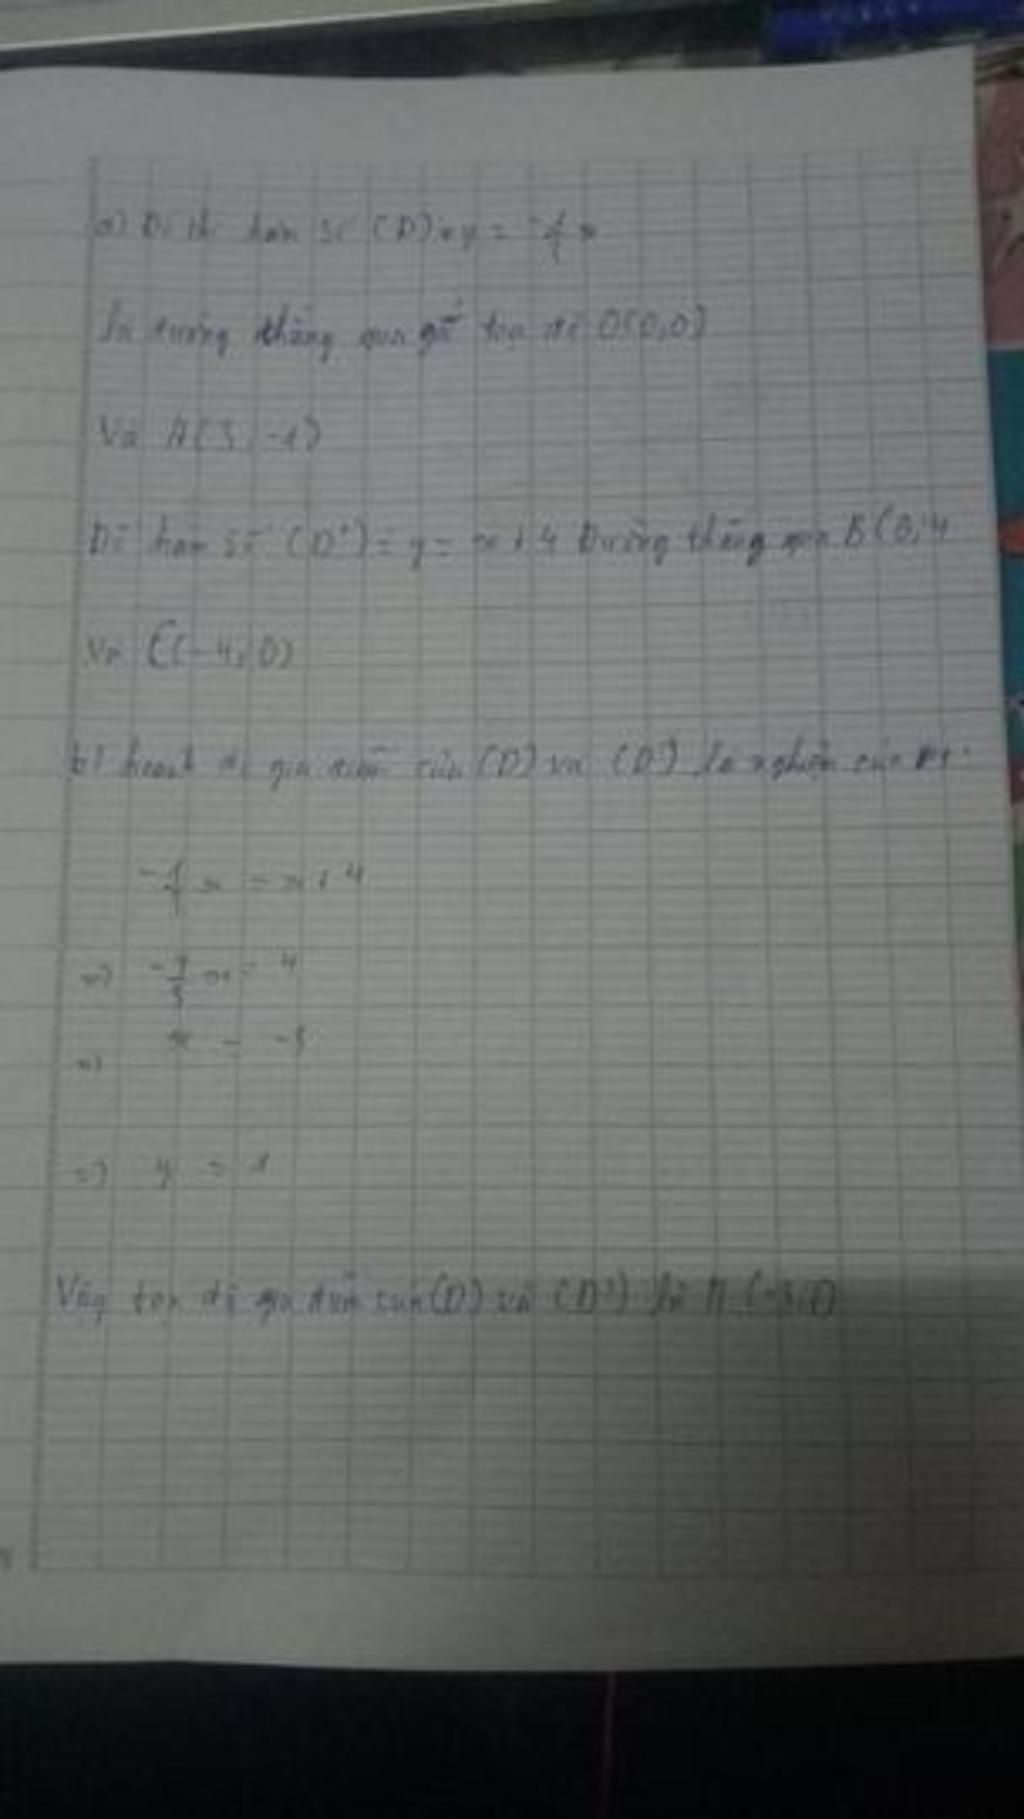 a) Đồ thị hàm số (D): y = -1/3 x
là đường thẳng qua gố toạ độ O(0,0)
Và A(3; -1)
Đồ hàm số (D') = y = x + 4 Đường thẳng qua B(0; 4
Và C(-4; 0)
b) hoành độ gia điểm của (D) và (D') là nghiệm của PT:
-1/3 x = x + 4
=> -4/3 x = 4
=> x = -3
=> y = 1
Vậy toạ độ gia điểm của (D) và (D') là (-3; 1)